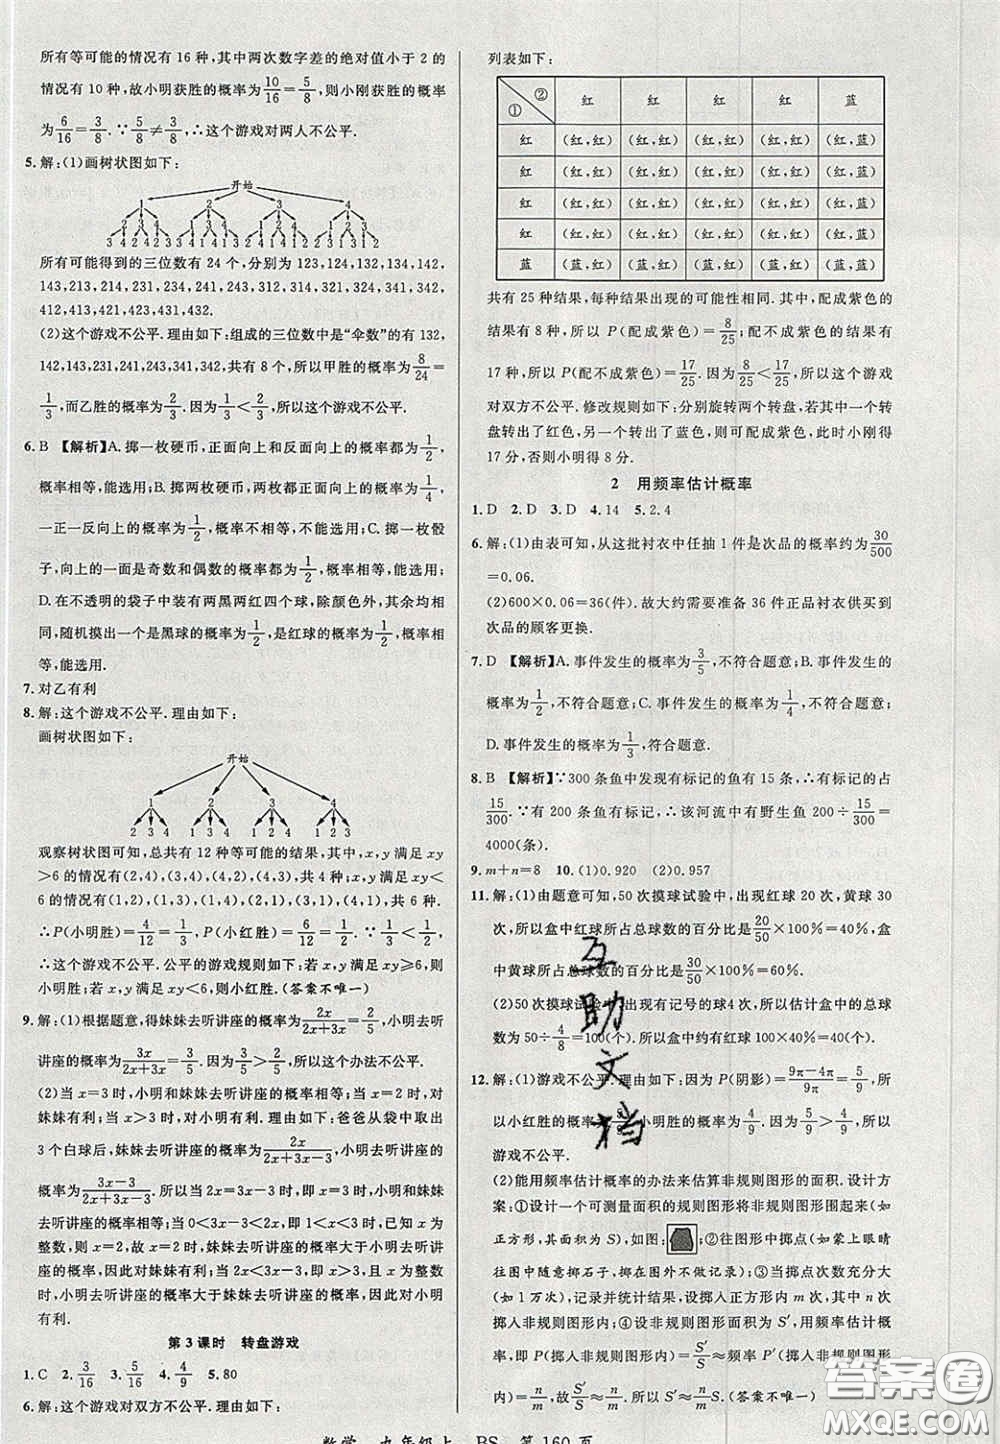 所有等可能的情况有 16 种,其中两次数字差的绝对值小于 2 的
情况有 10 种,故小明获胜的概率为10/16=5/8,则小刚获胜的概率
为6/16=3/8.∵5/8≠3/8,∴这个游戏对两人不公平.
5.解:(1)画树状图如下:
开始
1 2 3 4
2 3 4 1 3 4 1 2 4 1 2 3
3 4 2 4 2 3 3 4 1 4 1 3 2 4 1 4 1 2 2 3 1 3 1 2
所有可能得到的三位数有 24 个,分别为 123,124,132,134,142,
143,213,214,231,234,241,243,312,314,321,324,341,342,
412,413,421,423,431,432.
(2)这个游戏不公平.理由如下:组成的三位数中是“伞数”的有 132,
142,143,231,234,241,243,341,342,共有 8 个,所以甲胜的概率为8/24=
1/3,而乙胜的概率为2/3.因为1/3<2/3,所以这个游戏不公平.
6.B 【解析】A.掷一枚硬币,正面向上和反面向上的概率都为1/2,
概率相等,能选用;B.掷两枚硬币,两枚都正面向上的概率为1/4,
一正一反向上的概率为1/2,概率不相等,不能选用;C.掷一枚骰
子,向上的一面是奇数和偶数的概率都为1/2,概率相等,能选用;
D.在不透明的袋子中装有两黑两红四个球,除颜色外,其余均相
同,随机摸出一个是黑球的概率为1/2,是红球的概率为1/2,概率相
等,能选用.
7.对乙有利
8.解:这个游戏不公平.理由如下:
画树状图如下:
开始
1 2 3 4
2 3 4 1 3 4 1 2 4 1 2 3
观察树状图可知,总共有 12 种等可能的结果,其中,x,y 满足 xy
>6 的情况有(2,4),(3,4),(4,2),(4,3),共 4 种,x,y 满足 xy<
6 的情况有(1,2),(1,3),(1,4),(2,1),(3,1),(4,1),共 6 种.
∴P(小明胜)=4/12=1/3,P(小红胜)=6/12=1/2.∵1/3<1/2,∴这
个游戏不公平.公平的游戏规则如下:若 x,y 满足 xy⩾6,则小明
胜;若 x,y 满足 xy<6,则小红胜.(答案不唯一)
9.解:(1)根据题意,得妹妹去听讲座的概率为2x/(2x+3x)=2/5,小明去听
讲座的概率为3x/(2x+3x)=3/5.因为3/5>2/5,所以这个办法不公平.
(2)当 x=3 时,小明和妹妹去听讲座的概率相等;当 x>3 时,对
妹妹有利;当 x<3 时,对小明有利.理由如下:爸爸从袋中取出
3 个白球后,妹妹去听讲座的概率为2x/(2x+3x-3),小明去听讲座
的概率为(3x-3)/(2x+3x-3).所以当 2x=3x-3 时,即 x=3 时,小明和妹妹
去听讲座的概率相等;当 0<3x-3<2x 时,即 1<x<3,因为 x 为
整数,则 x=2 时,妹妹去听讲座的概率小于小明去听讲座的概
率,因此对小明有利;当 3x-3>2x 时,即 x>3,
有利.
第 3 课时 转盘游戏
1.C 2.3/16 3.5/16 4.4/9 5.80
6.解:这个游戏对双方不公平.理由如下:
列表如下:
① ② 红 红 红 红 蓝
红 (红,红) (红,红) (红,红) (红,红) (红,蓝)
红 (红,红) (红,红) (红,红) (红,红) (红,蓝)
红 (红,红) (红,红) (红,红) (红,红) (红,蓝)
红 (红,红) (红,红) (红,红) (红,红) (红,蓝)
蓝 (蓝,红) (蓝,红) (蓝,红) (蓝,红) (蓝,蓝)
共有 25 种结果,每种结果出现的可能性相同.其中,配成紫色的
结果有 8 种,所以 P(配成紫色)=8/25;配不成紫色的结果有
17 种,所以 P(配不成紫色)=17/25.因为8/25<17/25,所以这个游戏
对双方不公平.修改规则如下:分别旋转两个转盘,若其中一个转
盘转出了红色,另一个转出了蓝色,则可配成紫色,此时小刚得
17 分,否则小明得 8 分.
2 用频率估计概率
1.D 2.D 3.D 4.14 5.2.4
6.解:(1)由表可知,从这批衬衣中任抽 1 件是次品的概率约为30/500
=0.06.
(2)600×0.06=36(件).故大约需要准备 36 件正品衬衣供买到
次品的顾客更换.
7.D 【解析】A.事件发生的概率为3/5,不符合题意;B.事件发生的
概率为1/2,不符合题意;C.事件发生的概率为1/4,不符合题意;
D.事件发生的概率为1/3,符合题意.
8.B 【解析】∵300 条鱼中发现有标记的鱼有 15 条,∴有标记的占
15/300.∵有 200 条鱼有标记,∴该河流中有野生鱼 200÷15/300=
4000(条).
9.m+n=8 10.(1)0.920 (2)0.957
11.解:(1)由题意可知,50 次摸球试验中,出现红球 20 次,黄球 30
次,所以盒中红球所占总球数的百分比是20/50×100%=40%,盒
中黄球所占总球数的百分比是30/50×100%=60%.
(2)50 次摸球试验中,出现有记号的球4 次,所以估计盒中的总球
数为 50÷4/8=100(个).所以盒中约有红球 100×40%=40(个).
12.解:(1)游戏不公平.理由如下:因为 P(阴影)=(9π-4π)/9π=5/9,所
以小红胜的概率为5/9,小明胜的概率为4/9.因为5/9>4/9,所以
游戏不公平.
(2)能用频率估计概率的办法来估算非规则图形的面积.设计方
案:①设计一个可测量面积的规则图形将非规则图形围起来(如
正方形,其面积为 S),如图;②往图形中掷点(如蒙上眼睛
往图中随意掷石子,掷在图外不做记录);③当掷点次数充分大
(如 1 万次),记录并统计结果,设掷入正方形内 m 次,其中 n
次掷入非规则图形内;④设非规则图形面积为 S′,用频率估计概
率,即 P(掷入非规则图形内)=S′/S≈频率 P′(掷入非规则图形
内)=n/m,故S′/S≈n/m,所以 S′≈Sn/m.(答案不唯一)
互助文档
答案圈
MXQE.COM
数学 九年级上 BS 第 160 页